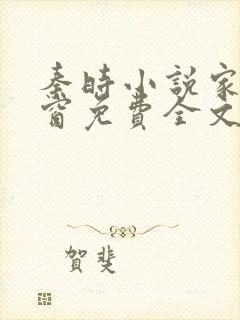 秦時小説家
窗免費全文
賀斐